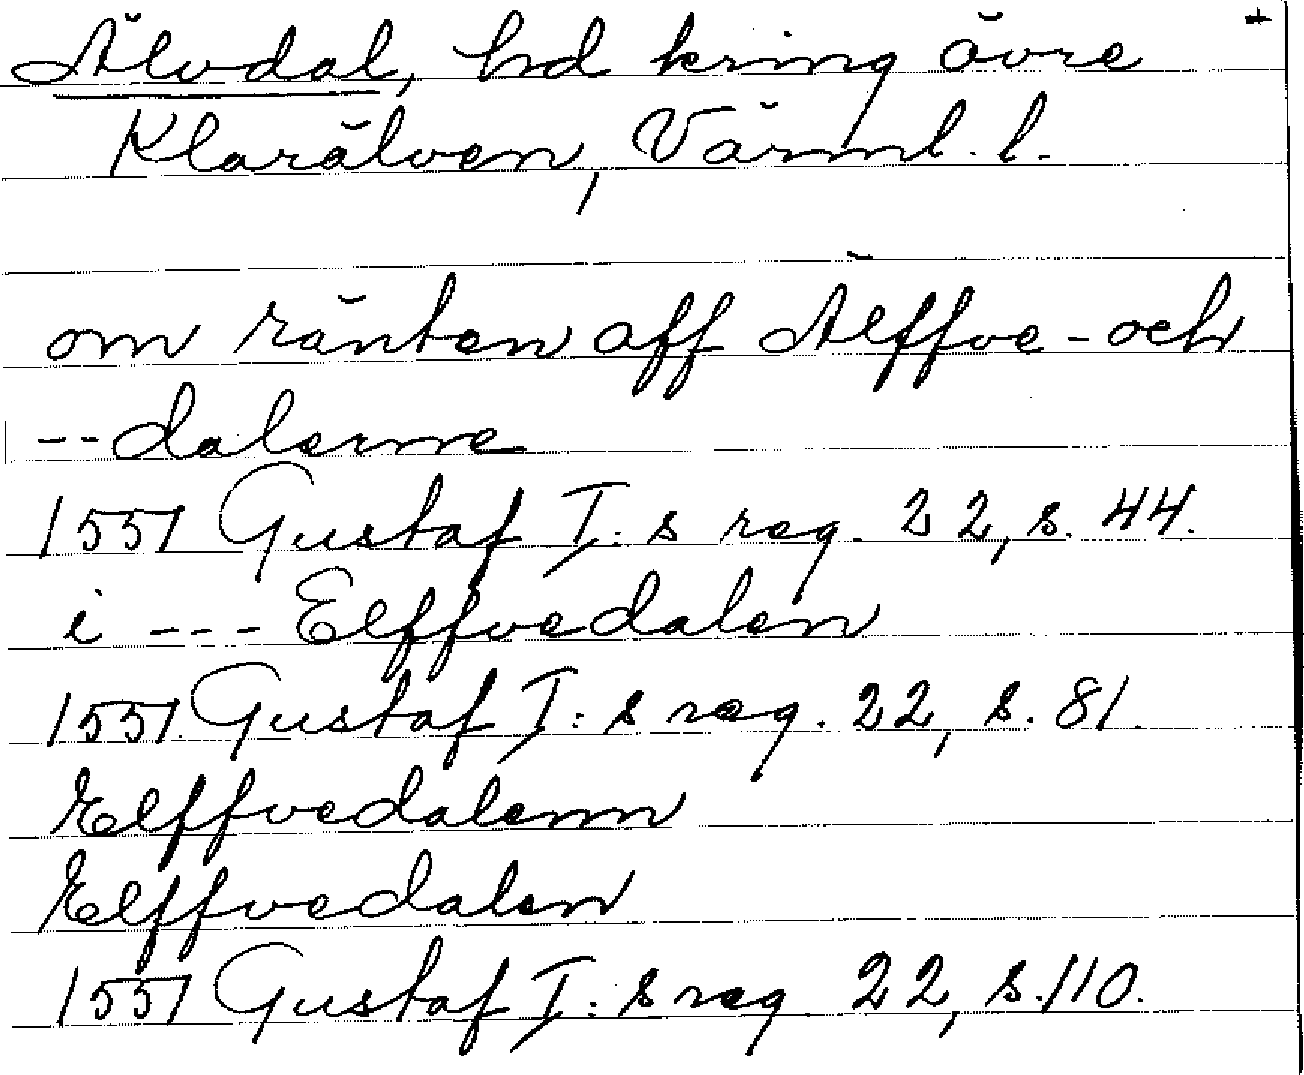 Älvdal, hd kring övre +
Klarälven, Värml. l.
om räntan aff Älffve - och
-- dalerne
1551 Gustaf I: s reg. 22, s. 44.
i --- Elffvedalen
1551 Gustaf I: s reg. 22, s. 81.
Elffvedalenn
Elffvedalen
1551 Gustaf I: s reg 22, s. 110.